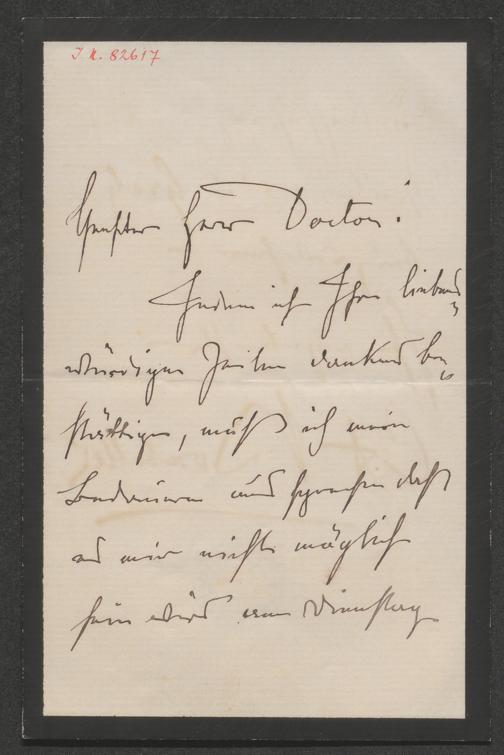 J. N. 82617
Geehrter Herr Doctor!
Indem ich Ihre liebens-
würdigen Zeilen dankend be-
stättige, muß ich mein
Bedauern aussprechen daß
es mir nicht möglich
sein wird am Dienstag